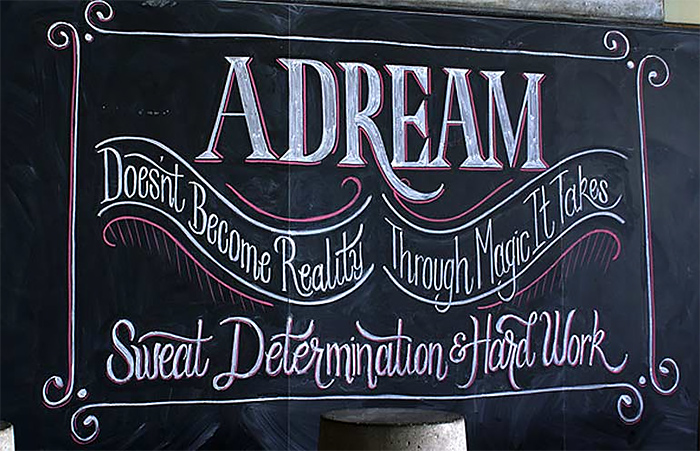 A DREAM
Does'nt Become Reality
Through Magic It Takes
Sweat Determination & Hard Work